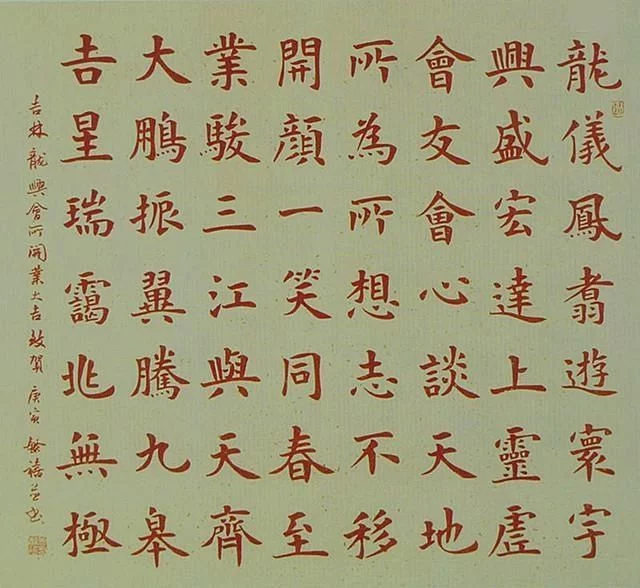 龍儀鳳翥遊寰宇
興盛宏達上靈虛
會友會心談天地
所為所想志不移
開顏一笑同春至
業駿三江與天齊
大鵬振翼騰九皋
吉星瑞靄兆無極
吉林龍興會所開業大吉 賀 庚寅 書